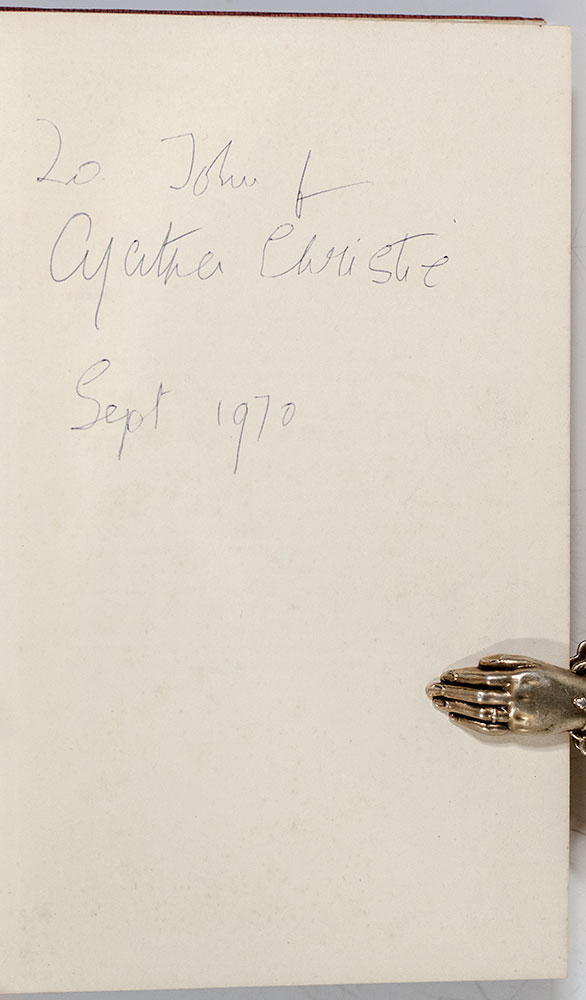 To John
Agatha Christie
Sept 1970